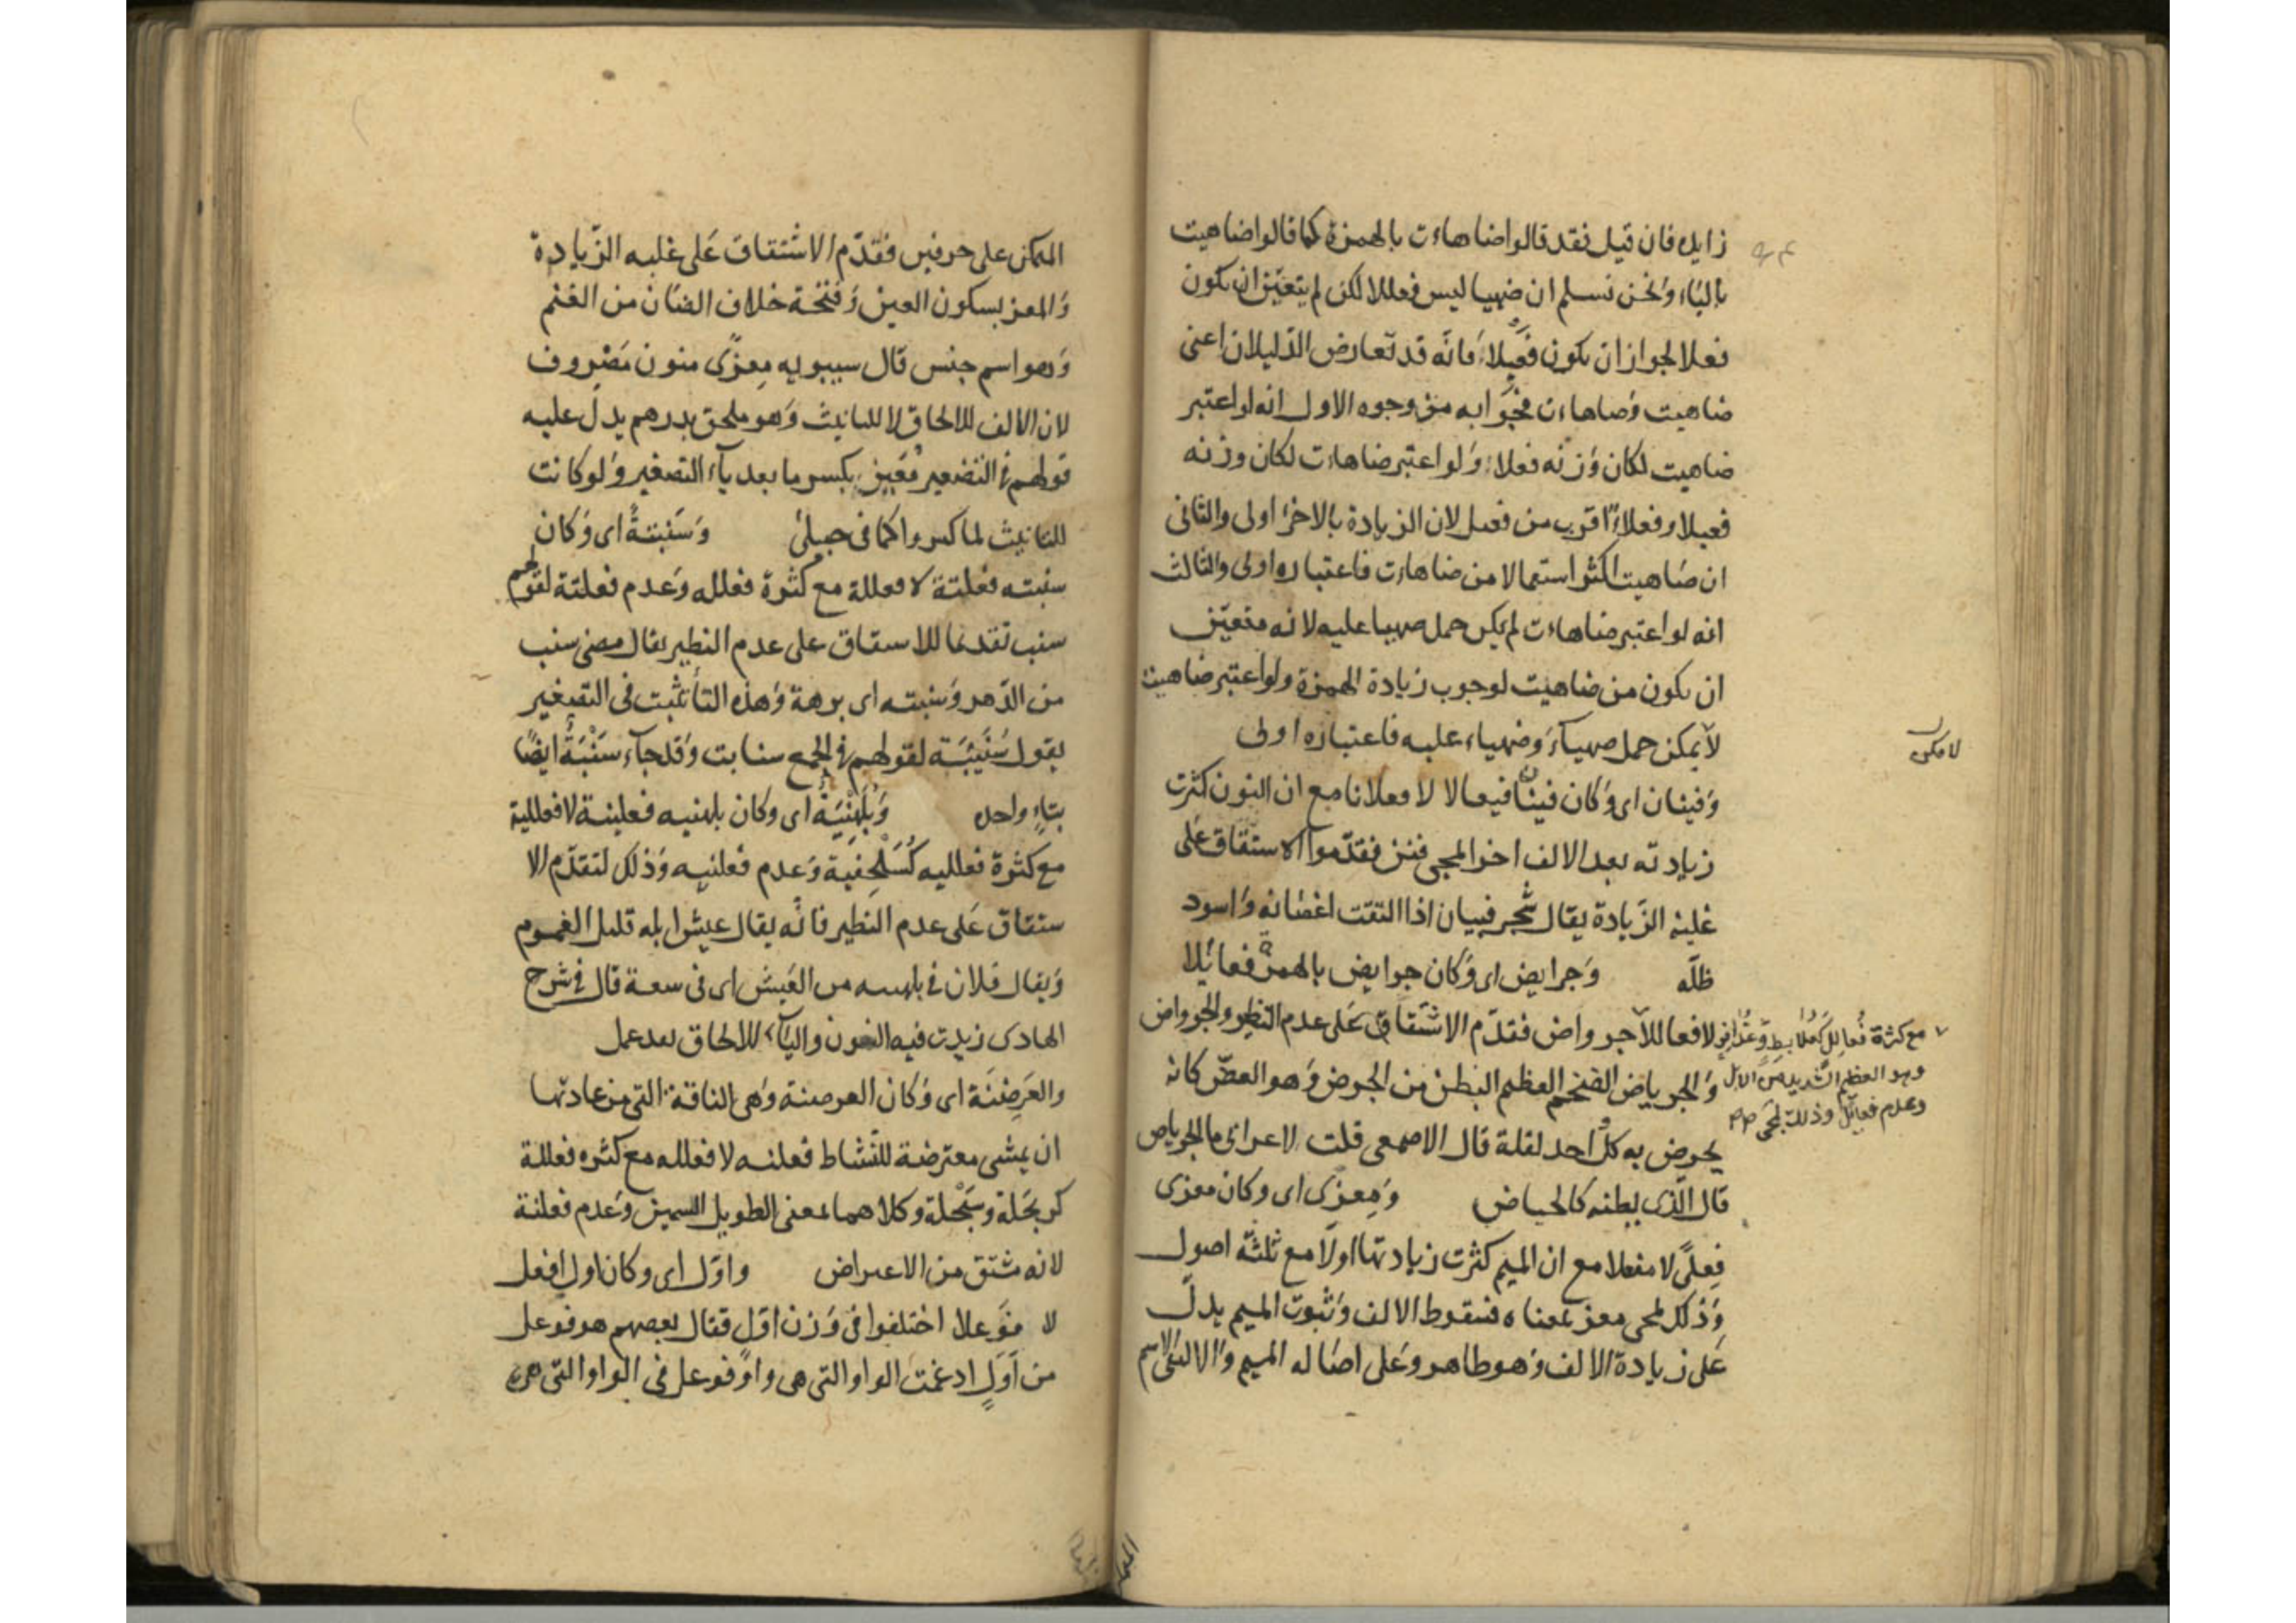 زايده فان قيل فقد قالوا ضاهاءت بالهمزة كما قالوا ضاهيت
بالياء ونحن نسلم ان ضهيا ليس فعللا لكن لم يتعين ان يكون
فعلا لجواز ان يكون فعيلا فانه قد تعارض الدليلان اعنى
ضاهيت وضاهاءت فجوابه من وجوه الاول انه لو اعتبر
ضاهيت لكان وزنه فعلاء ولو اعتبر ضاهاءت لكان وزنه
فعيلا وفعلاء اقرب من فعيل لان الزيادة بالاخر اولى والثانى
ان ضاهيت اكثر استعمالا من ضاهاءت فاعتباره اولى والثالث
انه لو اعتبر ضاهاءت لم يكن حمل ضهيا عليه لانه متعين
ان يكون من ضاهيت لوجوب زيادة الهمزة ولو اعتبر ضاهيت
لا يمكن حمل ضهياء وضهياء عليه فاعتباره اولى
وفينان اى وكان فينان فيعالا لا فعلانا مع ان النون كثرت
زيادته بعد الالف اخرا لمجى فنن فقدموا الاشتقاق على
غلبة الزيادة يقال شجر فينان اذا التفت اغصانه واسود
ظله وجرايض اى وكان جرايض بالهمزة فعائلا
لا فعاللا جرواض فقدم الاشتقاق على عدم النظير والجرواض
مع كثرة فعالل كعلابط وعذافر
وهو العظيم الشديد من الابل
وعدم فعائل وذلك لمجى
والجرياض الضخم العظيم البطن من الجرض وهو الغص كانه
يجرض به كل احد لثقله قال الاصمعى قلت لاعرابى ما الجرياض
قال الذى بطنه كالحياض ومعزى اى وكان معزى
فعلى لا مفعلا مع ان الميم كثرت زيادتها اولا مع ثلثة اصول
وذلك لمجى معز بمعناه فسقوط الالف وثبوت الميم يدل
على زيادة الالف وهو ظاهر وعلى اصاله الميم والا لبقى الاسم
المتمكن على حرفين فقدم الاشتقاق على غلبه الزيادة
والمعز بسكون العين وفتحة خلاف الضان من الغنم
وهو اسم جنس قال سيبويه معزى منون مصروف
لان الالف للالحاق لا للتانيث وهو ملحق بدرهم يدل عليه
قولهم فى التصغير معيز بكسر ما بعد ياء التصغير ولو كانت
للتانيث لما كسروا كما فى حبيلى وسنبتة اى وكان
سنبته فعلتة لا فعللة مع كثرة فعلله وعدم فعلتة لقولهم
سنب تقديما للاشتقاق على عدم النظير يقال مضى سنب
من الدهر وسنبته اى برهة وهذه التا تثبت فى التصغير
يقول سنيبتة لقولهم فى الجمع سنابت وقد جاء سنبة ايضا
بتاء واحده وبلهنية اى وكان بلهنيه فعلينة لا فعللية
مع كثرة فعلليه كسلحفية وعدم فعلنيه وذلك لتقدم الا
شتقاق على عدم النظير فانه يقال عيش ابله قليل الغموم
ويقال فلان فى بلهنيه من العيش اى فى سعة قال فى شرح
الهادى زيدت فيه النون والياء للالحاق بقذعمل
والعرضنة اى وكان العرضنة وهى الناقة التى من عادتها
ان يمشى معترضة للنشاط فعلنه لا فعلله مع كثره فعللة
كربحلة وسبحلة وكلاهما بمعنى الطويل السمين وعدم فعلنة
لانه مشتق من الاعتراض واول اى وكان اول افعل
لا فوعلا اختلفوا فى وزن اول فقال بعضهم هو فوعل
من اول ادغمت الواو التى هى واو فوعل فى الواو التى هى